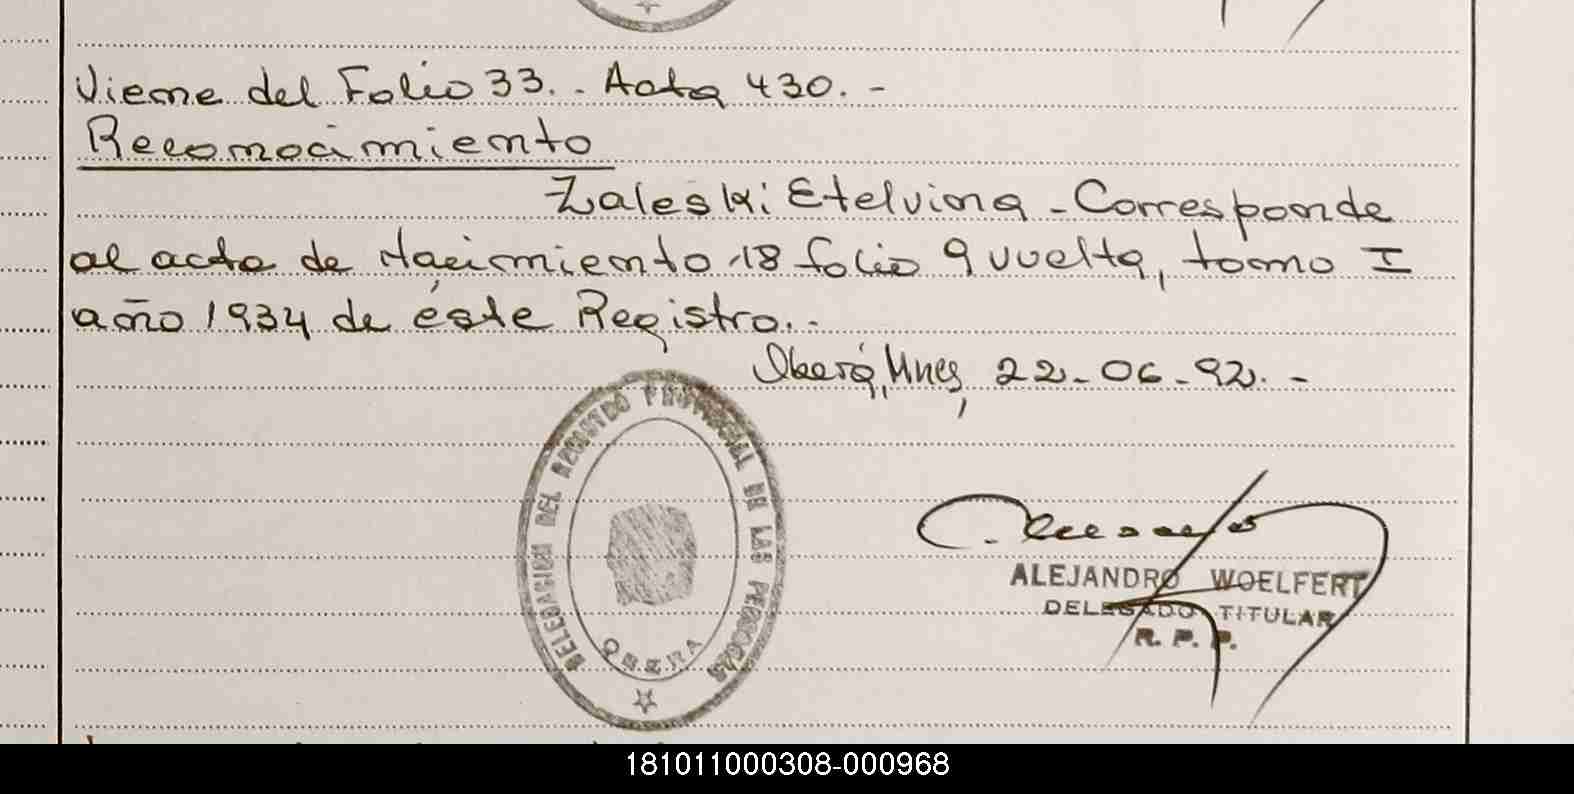 Viene del Folio 33. - Acta 430. -
Reconocimiento
Zaleski Etelvina - Corresponde
al acta de Nacimiento 18 folio 9 vuelta, tomo I
año 1934 de éste Registro. -
Oberá, Mnes, 22-06-92. -
DELEGACION DEL REGISTRO PROVINCIAL DE LAS PERSONAS
OBERA
ALEJANDRO WOELFERT
DELEGADO TITULAR
R. P. P.
181011000308-000968